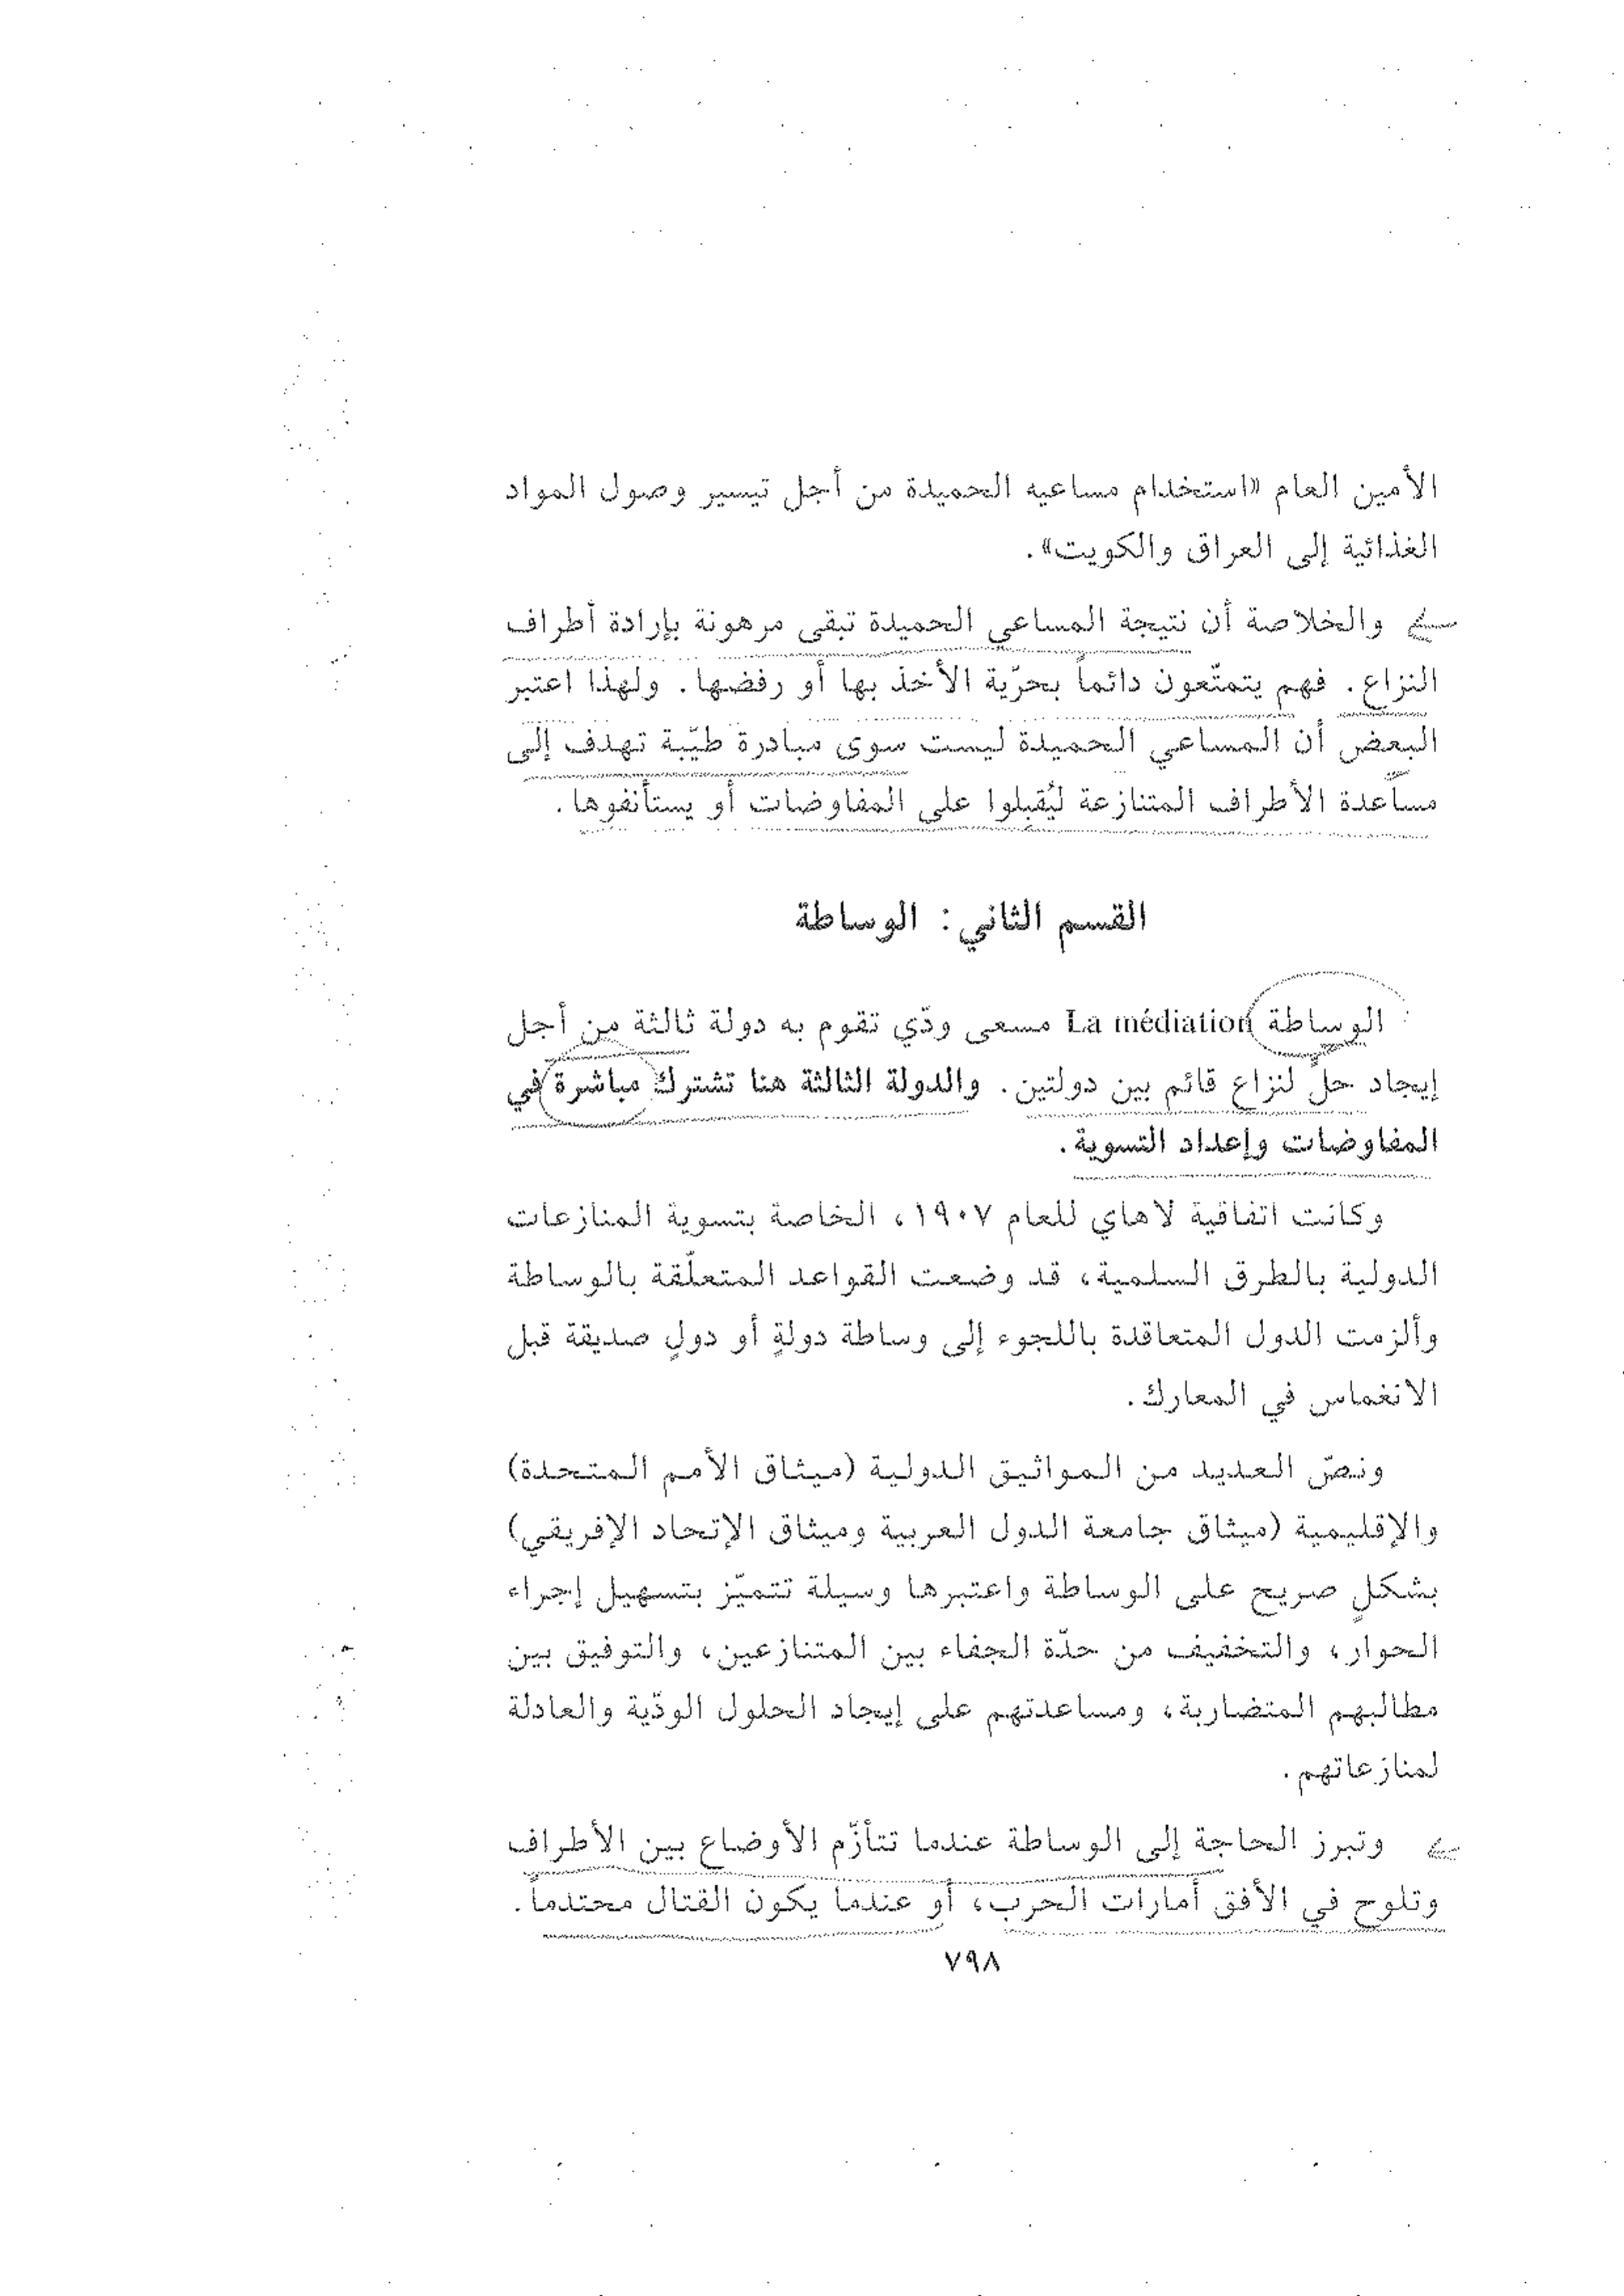 الأمين العام «استخدام مساعيه الحميدة من أجل تيسير وصول المواد
الغذائية إلى العراق والكويت».
والخلاصة أن نتيجة المساعي الحميدة تبقى مرهونة بإرادة أطراف
النزاع. فهم يتمتّعون دائماً بحرّية الأخذ بها أو رفضها. ولهذا اعتبر
البعض أن المساعي الحميدة ليست سوى مبادرة طيّبة تهدف إلى
مساعدة الأطراف المتنازعة ليُقبلوا على المفاوضات أو يستأنفوها.
القسم الثاني: الوساطة
الوساطة La médiation مسعى ودّي تقوم به دولة ثالثة من أجل
إيجاد حلٍ لنزاع قائم بين دولتين. والدولة الثالثة هنا تشترك مباشرة في
المفاوضات وإعداد التسوية.
وكانت اتفاقية لاهاي للعام ١٩٠٧، الخاصة بتسوية المنازعات
الدولية بالطرق السلمية، قد وضعت القواعد المتعلّقة بالوساطة
وألزمت الدول المتعاقدة باللجوء إلى وساطة دولةٍ أو دولٍ صديقة قبل
الانغماس في المعارك.
ونصّ العديد من المواثيق الدولية (ميثاق الأمم المتحدة)
والإقليمية (ميثاق جامعة الدول العربية وميثاق الإتحاد الإفريقي)
بشكلٍ صريح على الوساطة واعتبرها وسيلة تتميّز بتسهيل إجراء
الحوار، والتخفيف من حدّة الجفاء بين المتنازعين، والتوفيق بين
مطالبهم المتضاربة، ومساعدتهم على إيجاد الحلول الودّية والعادلة
لمنازعاتهم.
وتبرز الحاجة إلى الوساطة عندما تتأزّم الأوضاع بين الأطراف
وتلوح في الأفق أمارات الحرب، أو عندما يكون القتال محتدماً.
٧٩٨